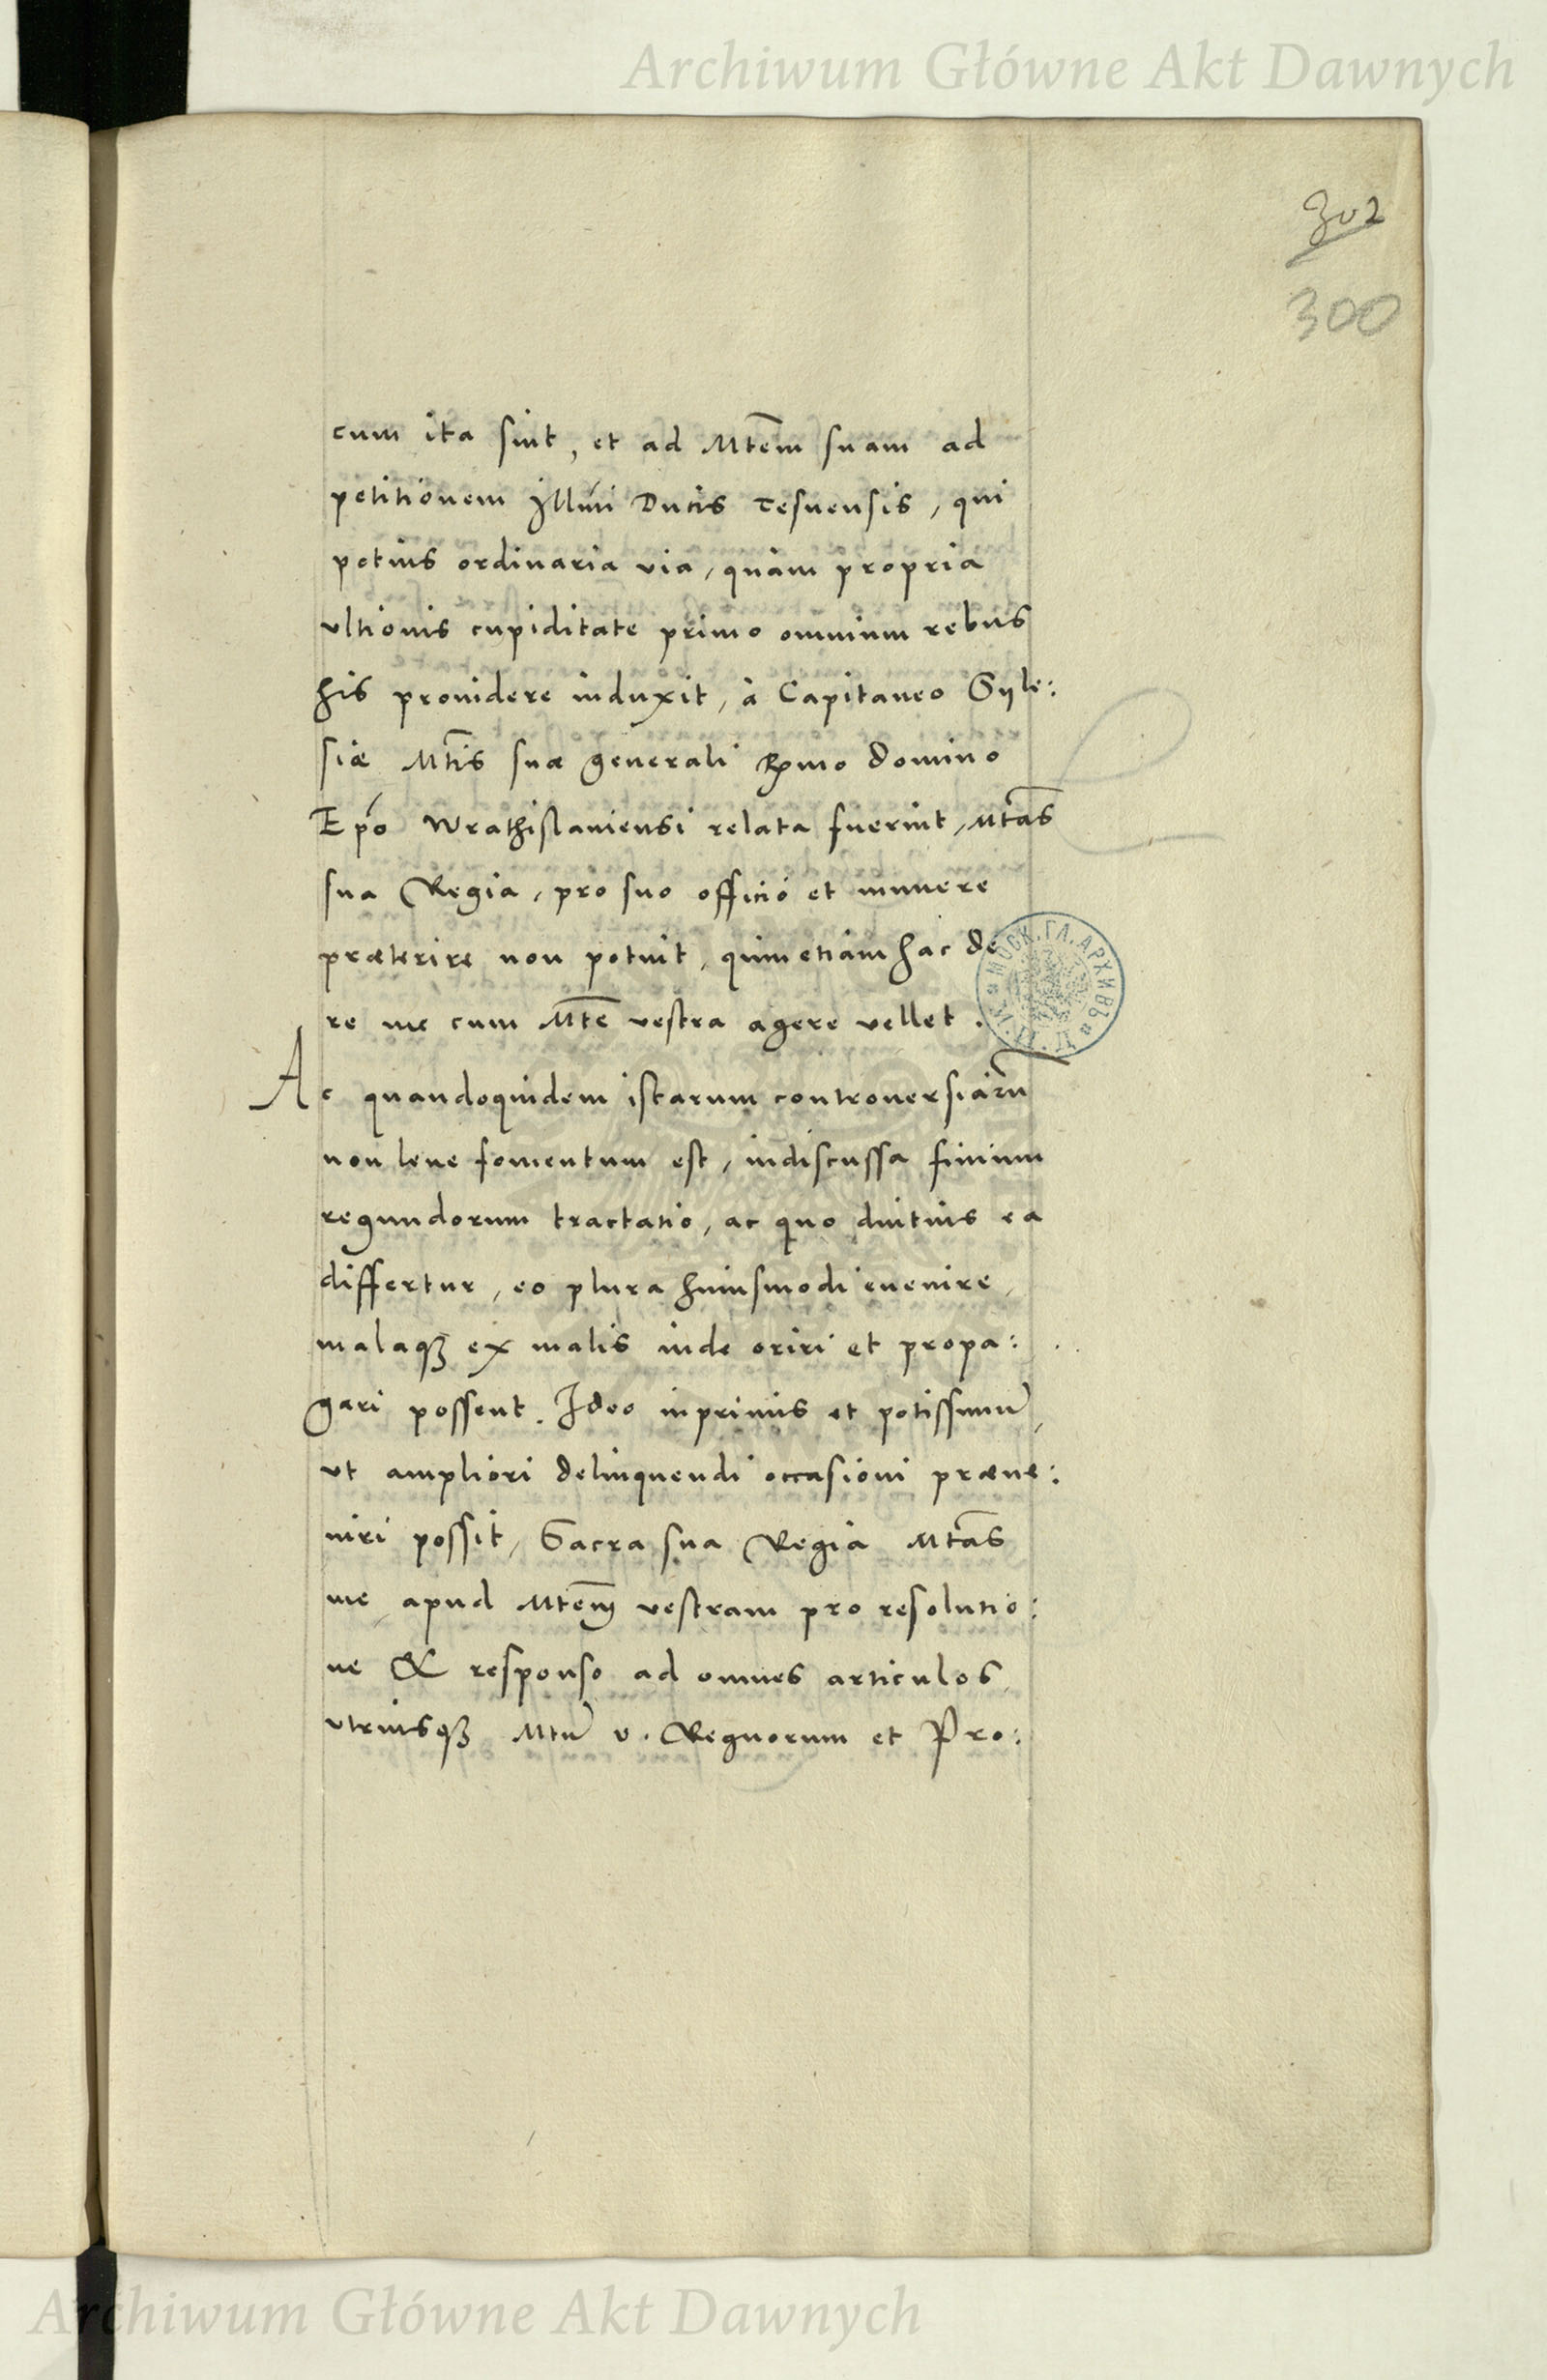 Archiwum Główne Akt Dawnych
302
300
cum ita sint, et ad Mtem suam ad
petitionem Illmi Ducis Tesnensis, qui
potius ordinaria via, quàm propria
ultionis cupiditate primo omnium rebus
his providere induxit, à Capitaneo Syle:
siæ Mtis suæ generali Rmo domino
Epo Wrathislaviensi relata fuerint, Mtas
sua Regia, pro suo officio et munere
præterire non potuit, quin etiam hac de
re me cum Mte vestra agere vellet.
Ac quandoquidem istarum controversiarũ
non leve fomentum est, indiscussa finium
regundorum tractatio, ac quo diutius ea
differtur, eo plura huiusmodi evenire,
malaqz ex malis inde oriri et propa:
gari possent. Ideo inprimis et potissimũ,
ut ampliori delinquendi occasioni præve:
niri possit, Sacra sua Regia Mtas
me apud Mtem vestram pro resolutio:
ne & responso ad omnes articulos
utriusqz Mtũ v. Regnorum et Pro:
МОСК. ГЛ. АРХИВЪ
Archiwum Główne Akt Dawnych